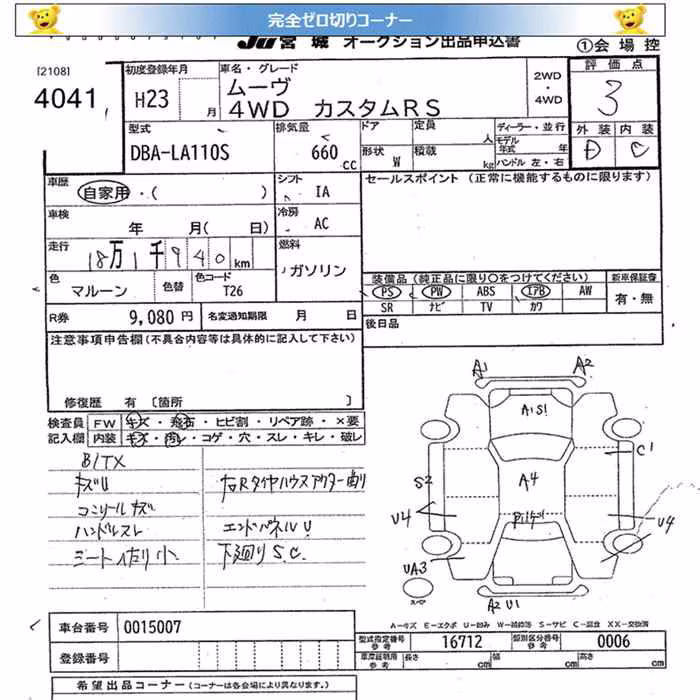 完全ゼロ切りコーナー
JU宮城 オークション出品申込書
①会場控
[2108]
4041
初度登録年月
H23 月
車名・グレード
ムーヴ
4WD カスタムRS
2WD
・
4WD
評価点
3
外装 内装
D C
型式
DBA-LA110S
排気量
660 CC
ドア
定員 人
形状 W
積載 kg
ディーラー・並行
モデル年式 年
ハンドル 左・右
車歴
自家用・( )
シフト
IA
セールスポイント (正常に機能するものに限ります)
車検
年 月( 日)
冷房
AC
走行
18万1千940km
燃料
ガソリン
色
マルーン
色替
色コード
T26
装備品(純正品に限り○をつけてください)
新車保証書
PS PW ABS エアB AW
SR ナビ TV カワ
有・無
R券 9,080円
名変通知期限 月 日
後日品
注意事項申告欄(不具合内容等は具体的に記入して下さい)
修復歴 有 〔箇所 〕
検査員 FW キズ・飛石・ヒビ割・リペア跡・×要
記入欄 内装 キズ・汚レ・コゲ・穴・スレ・キレ・破レ
キズU
ハンドルスレ
右Rタイヤハウスアウター削り
エンドパネルU
下廻りS.C.
A1 A2
A1S1
C1
S2
A4
U4
U4
UA3
A2 U1
A-キズ E-エクボ U-凹み W-補修跡 S-サビ C-腐食 XX-交換済
車台番号 0015007
登録番号
型式指定番号 参考 16712
類別区分番号 参考 0006
車庫証明用 参考 長さ cm 幅 cm 高さ cm
希望出品コーナー(コーナーは各会場により異なります。)